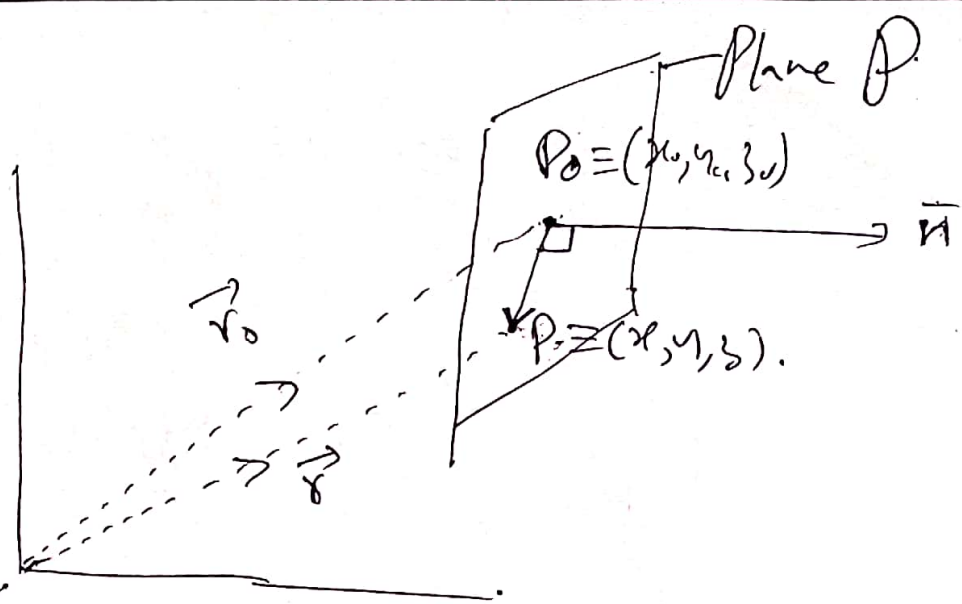 Plane P.
P₀ ≡ (x₀, y₀, z₀)
n̄
r⃗₀
P ≡ (x, y, z).
r⃗